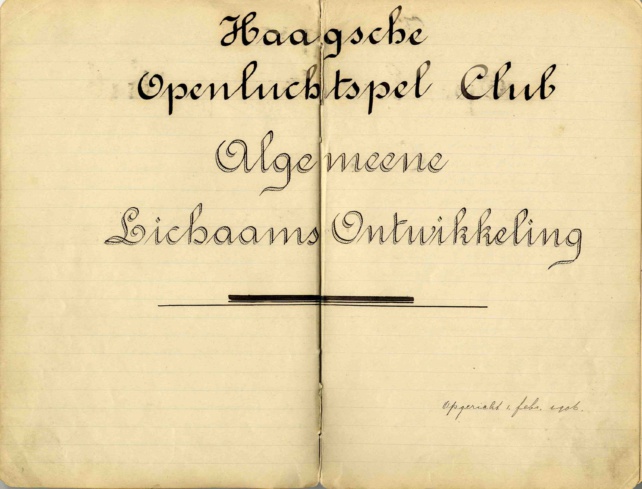 Haagsche
Openluchtspel Club
Algemeene
Lichaams Ontwikkeling
Opgericht 1 febr. 1906.